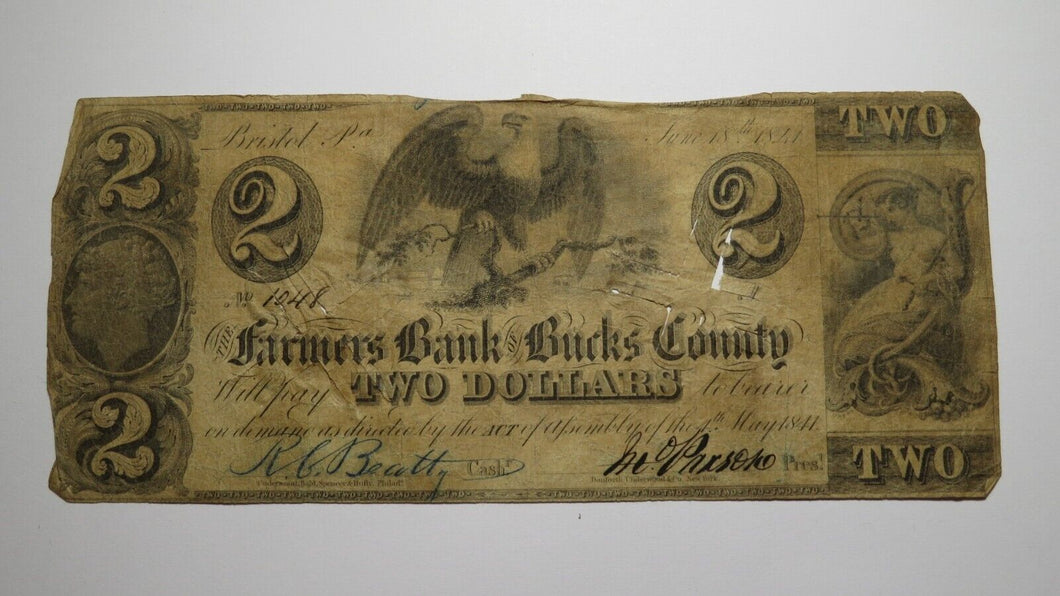 TWO-TWO-TWO-TWO-TWO-TWO-
2 TWO
Bristol Pa. June 18th 1841
2 2
No 1048
THE Farmers Bank OF Bucks County
Will pay TWO DOLLARS to bearer
on demand as directed by the ACT of Assembly of the 4th May 1841.
2 TWO
R. C. Beatty Cashr. Prest.
Underwood, Bald, Spencer & Hufty, Philada. Danforth Underwood & Co. New York.
TWO-TWO-TWO-TWO-TWO-TWO-TWO-TWO-TWO